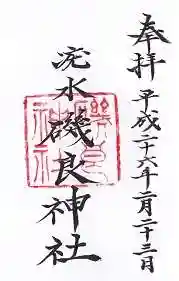 奉拝 平成二十六年二月二十三日
疣水磯良神社